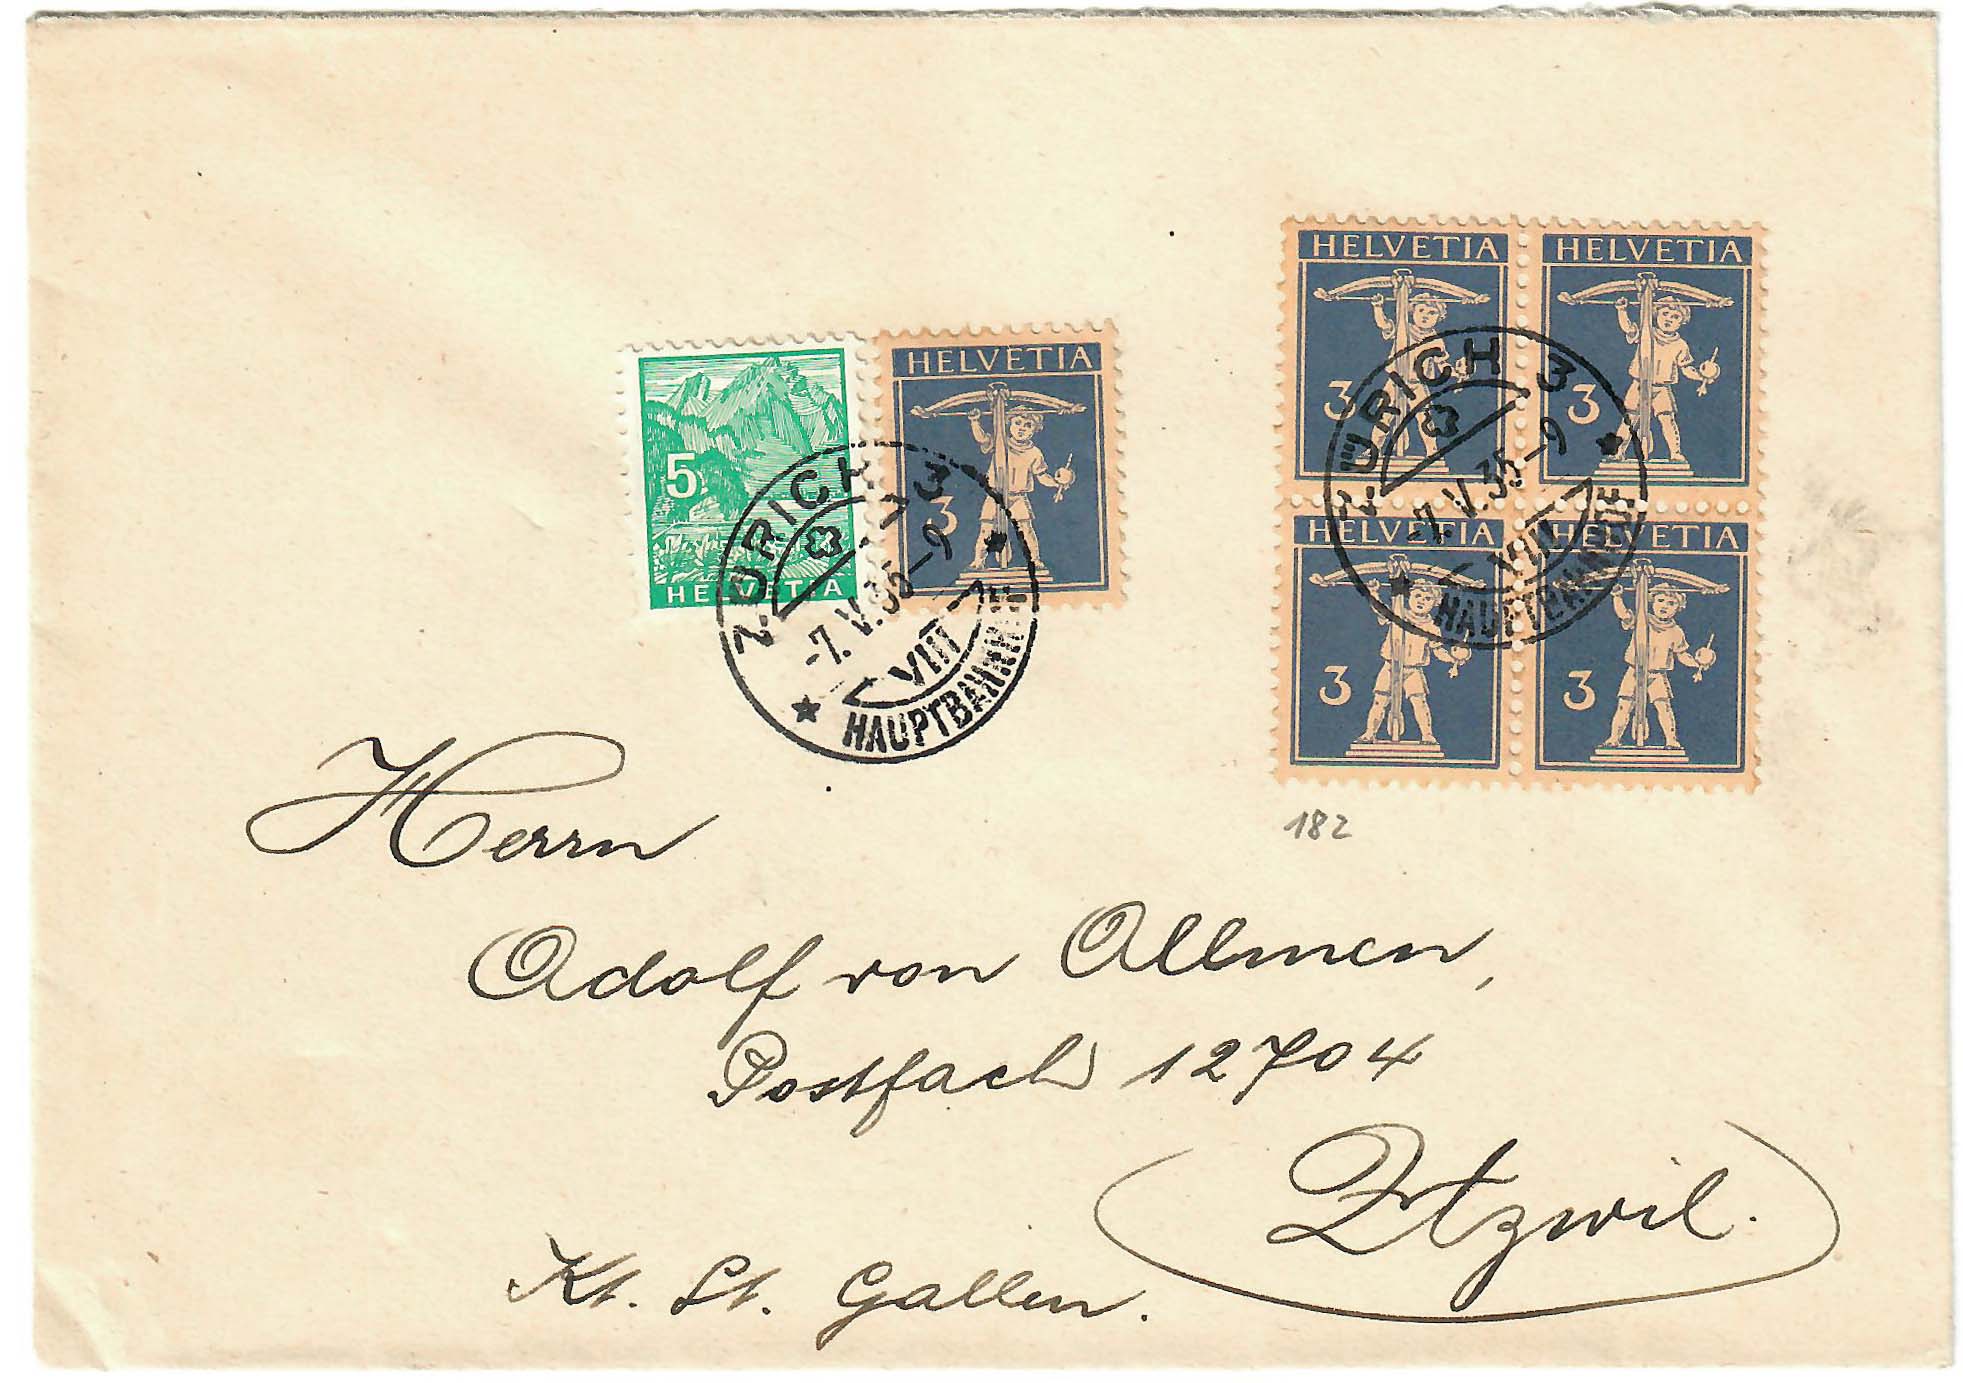 HELVETIA
3
HELVETIA
3
HELVETIA
3
HELVETIA
3
ZÜRICH 3
-7.V.35-9
VIII
HAUPTBAHNHOF
5
HELVETIA
HELVETIA
3
ZÜRICH 3
-7.V.35-9
VIII
HAUPTBAHNHOF
182
Herrn
Adolf von Allmen,
Postfach 12704
Utzwil.
Kt. St. Gallen.